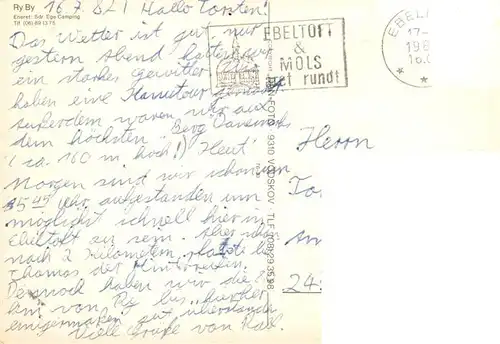 Ry By
Eneret: Sdr. Ege Camping
16.7.82 Hallo Torsten!
Das Wetter ist gut, nur
gestern Abend hatten wir
ein starkes Gewitter. Wir
haben eine Kanutour gemacht
außerdem waren wir auf
dem höchsten Berg Dänemarks
(ca. 160 m hoch!) Heut'
Morgen sind wir schon um
5.45 Uhr aufgestanden um
möglichst schnell hier in
Ebeltoft zu sein. Aber schon
nach 2 Kilometern
Thomas der Hinterreifen.
Dennoch haben wir die
km von Ry bis hierher
einigermaßen gut überstanden
Viele Grüße von
EBELTOFT
&
MOLS
det rundt
EBEL
17-
198
16.
9310 VODSKOV TLF. (08) 29 35 98
Herrn
To
Am
24